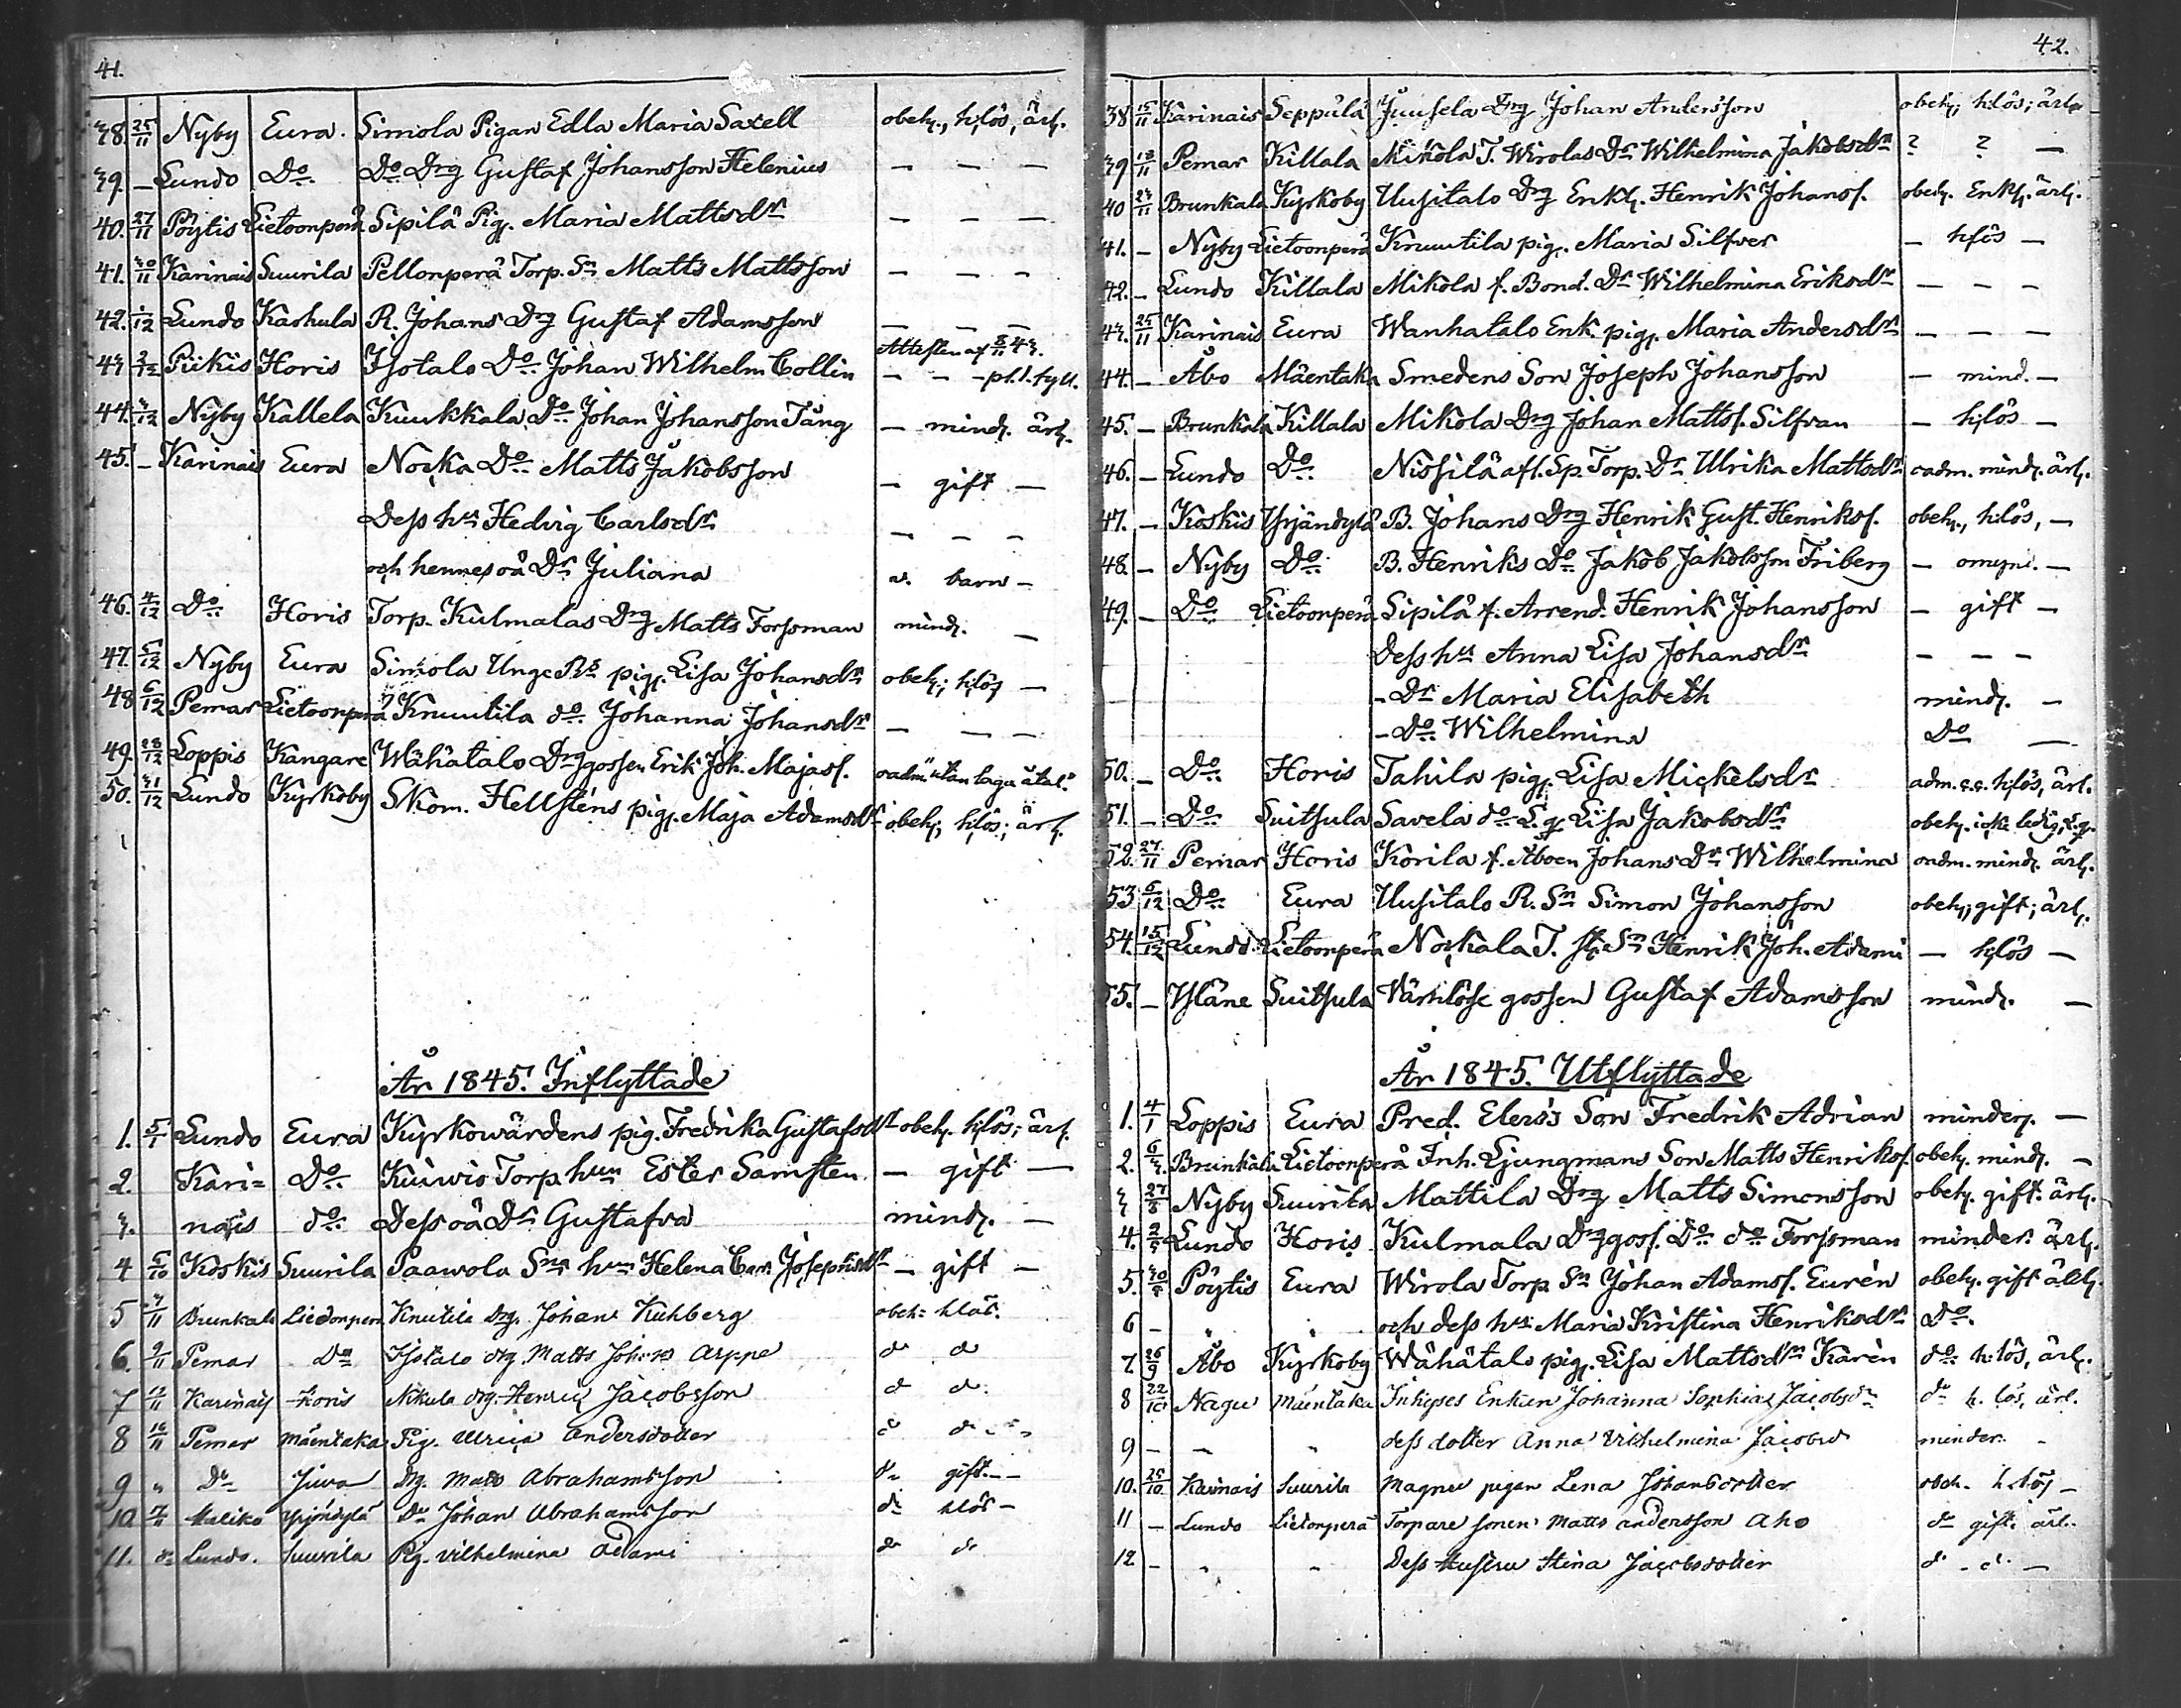 41.
38 25/11 Nyby Eura. Simola Pigan Edla Maria Saxell obeh., hflös, ärl.
39. — Lundo Do. Do Drg Gustaf Johansson Helenius — — —
40. 27/11 Pöytis Lietoonperä Sipilä Pig. Maria Mattsdr — — —
41. 30/11 Karinais Suurila Pellonperä Torp. Sn Matts Mattsson — — —
42. 1/12 Lundo Karhula R. Johans Drg Gustaf Adamsson — — —
43 2/12 Piikis Horis Isotalo Do Johan Wilhelm Collin Attesten af 8/11 43. — —
44. 3/12 Nyby Kallela Kuukkala Do Johan Johansson Tång — mind. ärl.
45. — Karinais Eura Norka Do Matts Jakobsson — gift —
Dess hu Hedvig Carlsdr — — —
och hennes oä Dr Juliana barn —
46. 4/12 Do Horis Torp. Kulmalas Drg Matts Forsman mind. —
47. 5/12 Nyby Eura Simola Unge Rs pig. Lisa Johansdr obeh; hflös —
48 6/12 Pemar Lietoonperä Knuutila do Johanna Johansdr — — —
49. 28/12 Loppis Kangare Wähätalo Drggossen Erik Joh. Majas. oadm utan laga åtal.
50. 31/12 Lundo Kyrkoby Skom. Hellsténs pig. Maja Adamsdr obeh; hflös; ärl.
År 1845. Inflyttade
1. 5/1 Lundo Eura Kyrkowärdens pig. Fredrika Gustafsdr obeh. hflös; ärl.
2. Kari= Do Kuiwis Torp. hun Ester Samsten — gift —
3. nais do Dess oä Dr Gustafva mind. —
4 5/10 Koskis Suurila Paawola Sns hun Helena Car. Josephsdr — gift —
5 /11 Brunkala Liedonperä Knutila Drg. Johan Kuhberg obeh: hlös.
6. 9/11 Pemar Do Isotalo drg. Matts Johans Arppe d d
7 12/11 Karinais Horis Nikula drg. Henric Jacobsson d d.
8 16/11 Pemar Mäentaka Pig. Ulrica Andersdotter d d
9 " Do Juva drg. Matts Abrahamsson do gift. —
10. 17/11 Yrjöndylä Do Johan Abrahamsson do hlös —
11. d Lundo. Suurila Pig. Vilhelmina Adami do do
42.
38 15/11 Karinais Seppälä Juusela Drg Johan Andersson obeh; hflös; ärl.
39 18/11 Pemar Killala Mikola T. Wirolas Dr Wilhelmina Jakobsdr ? ? —
40 24/11 Brunkala Kyrkoby Uusitalo Drg Enkl. Henrik Johans. obeh. Enkl. ärl.
41. — Nyby Lietoonperä Knuutila pig. Maria Silfver — hflös —
42. — Lundo Killala Mikola f. Bond. Dr Wilhelmina Eriksdr — — —
43. 25/11 Karinais Eura Wanhatalo Enk. pig. Maria Andersdr — — —
44. — Åbo Mäentaka Smedens Son Joseph Johansson — mind. —
45. — Brunkala Killala Mikola Drg Johan Matts. Silfvan — hflös —
46. — Lundo Do Nissilä afl. Sp. Torp. Dr Ulrika Mattsdr oadm. mind. ärl.
47. — Koskis Yrjändylä B. Johans Drg Henrik Gust. Henriks. obeh., hflös, —
48. — Nyby Do B. Henriks Do Jakob Jakobsson Friberg — omynd. —
49. — Do Lietoonperä Sipilä f. Arrend. Henrik Johansson — gift —
Dess hu Anna Lisa Johansdr — — —
— Dr Maria Elisabeth mind. —
— Do Wilhelmina Do —
50. — Do Horis Tahila pig. Lisa Mickelsdr adm. hflös, ärl.
51. — Do Suitsula Savela do L. q. Lisa Jakobsdr obeh. icke ledig, L.q.
52. 27/11 Pemar Horis Korila f. Åboen Johans Dr Wilhelmina oadm. mind. ärl.
53 6/12 Do Eura Uusitalo R. Sn Simon Johansson obeh; gift; ärl.
54. 15/12 Lundo Lietoonperä Norkala T. Sn Henrik Joh. Adami — hflös —
55. — Yläne Suitsula Värnlöse gossen Gustaf Adamsson mind. —
År 1845. Utflyttade
1. 4/1 Loppis Eura Pred. Elers's Son Fredrik Adrian minder. —
2. 6/3 Brunkala Lietoonperä Inh. Ljungmans Son Matts Henriks. obeh. mind. —
3 27/ Nyby Suurila Mattila Drg Matts Simonsson obeh. gift. ärl.
4. 2/ Lundo Horis Kulmala Drggoss. Do do Forssman minder. ärl.
5. 30/ Pöytis Eura Wirola Torp. Sn Johan Adams. Eurén obeh. gift ärl.
6 — " " och dess hu Maria Kristina Henriksdr Do.
7 26/9 Åbo Kyrkoby Wähätalo pig. Lisa Mattsdr Karén do hflös, ärl.
8 22/10 Nagu Mäentaka Inhyses Enkan Johanna Sophia Jacobsdr do h. lös, ärl.
9 — " " dess dotter Anna Vilhelmina Jacobsd minder. —
10. 25/10 Karinais Suurila Magnu pigan Lena Johansdotter obeh. hlös —
11 — Lundo Liedonperä Torpare sonen Matts Andersson Aho do gift. ärl.
12 — " " Dess Hustru Stina Jacobsdotter d. d. —